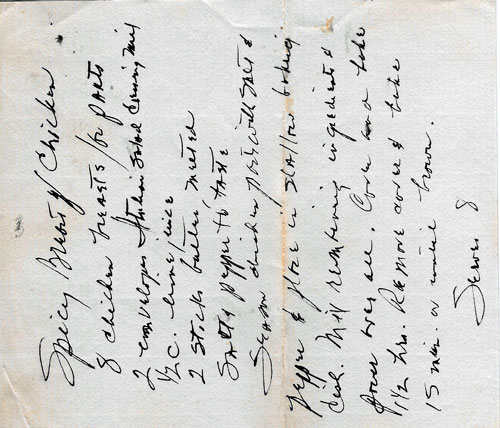 Spicy Breast of Chicken
8 chicken breasts/or parts
2 envelopes Italian salad dressing mix
1/2 c. lime juice
2 sticks butter, melted
Salt & pepper to taste
Season chicken parts with salt &
pepper & place in shallow baking
dish. Mix remaining ingredients &
pour over all. Cover and bake
1 1/2 hrs. Remove cover & bake
15 min. or until brown.
Serves 8